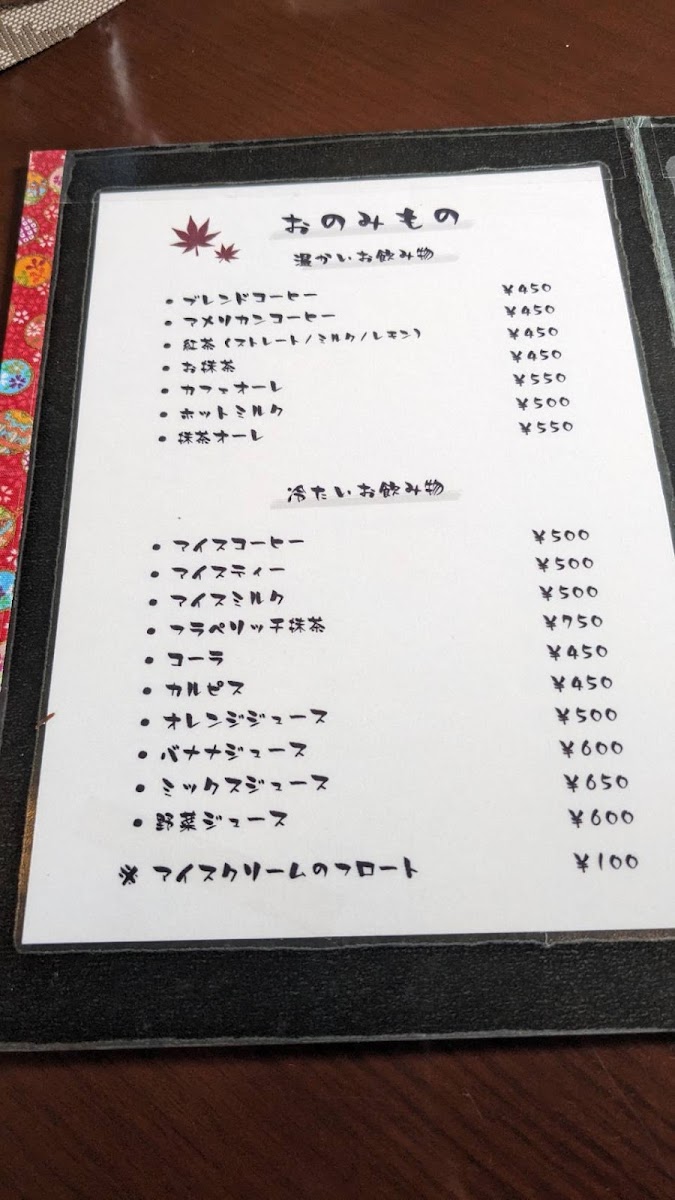 おのみもの
温かいお飲み物
• ブレンドコーヒー ¥450
• アメリカンコーヒー ¥450
• 紅茶(ストレート/ミルク/レモン) ¥450
• お抹茶 ¥450
• カフェオーレ ¥550
• ホットミルク ¥500
• 抹茶オーレ ¥550
冷たいお飲み物
• アイスコーヒー ¥500
• アイスティー ¥500
• アイスミルク ¥500
• フラペリッチ抹茶 ¥750
• コーラ ¥450
• カルピス ¥450
• オレンジジュース ¥500
• バナナジュース ¥600
• ミックスジュース ¥650
• 野菜ジュース ¥600
※ アイスクリームのフロート ¥100